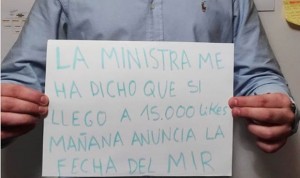 LA MINISTRA ME
HA DICHO QUE SI
LLEGO A 15.000 likes
MAÑANA ANUNCIA LA
FECHA DEL MIR